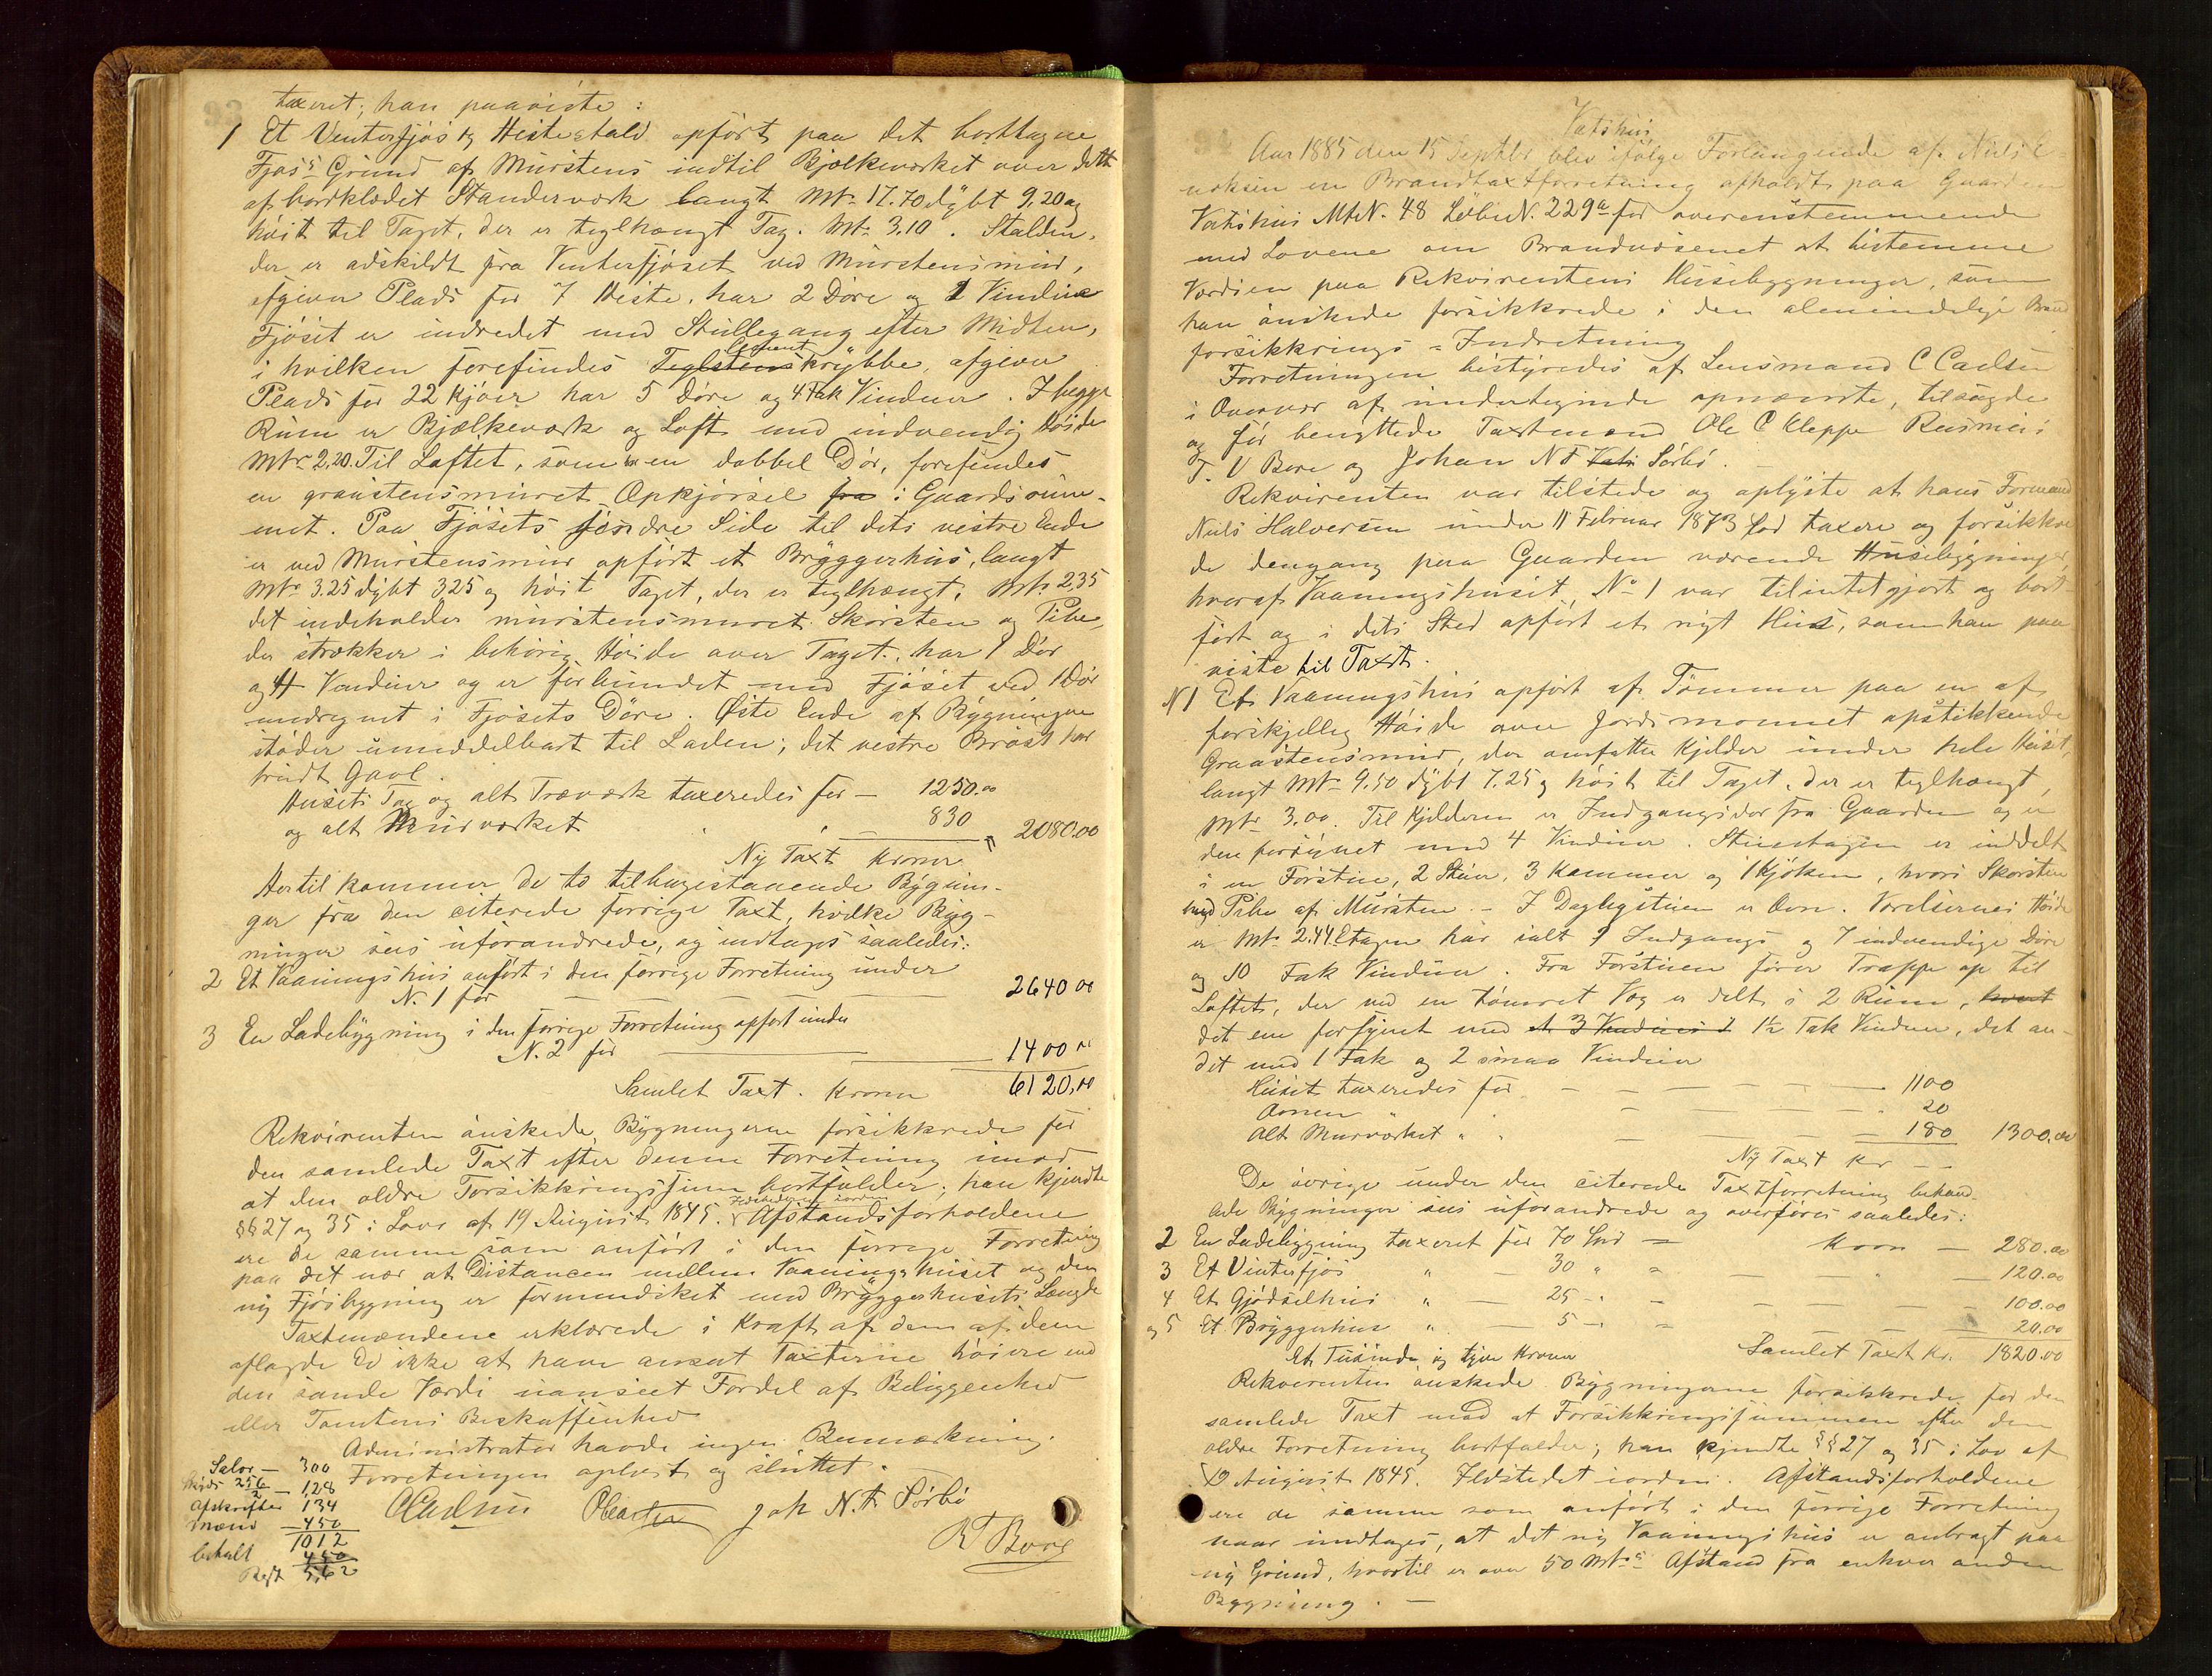 taxeret; han paaviste:
1 Et Vinterfjøs og Hestestald opført paa det borttagne
Fjøs's Grund af Murstens indtil Bjælkeværket over dette
af bordklædet Standerværk langt Mtr 17.70 dybt 9,20 og
høit til Taget, der er teglhængt Tag. Mtr 3.10. Stalden,
der er adskildt fra Vinterfjøset ved Murstensmur,
afgiver Plads for 7 Heste, har 2 Døre og 1 Vindue
Fjøset er indredet med Stullegang efter Midten,
i hvilken forefindes Teglstens Cement krybbe, afgiver
Plads for 22 Kjøer har 5 Døre og 4 Fak Vinduer. I begge
Rum er Bjælkeværk og Loft med indvendig Høide
Mtr 2,20. Til Loftet, som har en dobbel Dør, forefindes
en graastensmuret Opkjørsel fra i Gaardsrum-
met. Paa Fjøsets søndre Side til dets vestre Ende
er ved Murstensmur opført et Bryggerhus, langt
Mtr 3.25 dybt 325 og høit Taget, der er teglhængt, Mtr 2,35
det indeholder murstensmuret Skorsten og Pibe,
der strækker i behørig Høide over Taget, har 1 Dør
og 4 Vinduer og er forbundet med Fjøset ved 1 Dør
medregnet i Fjøsets Døre. Øste Ende af Bygningen
støder umiddelbart til Laden; det vestre Brøst har
brudt Gavl.
Husets Tag og alt Træværk taxeredes for — 1250.00
og alt Murværket — 830 = 2080.00
Ny Taxt Kroner
Hertil kommer de to tilbagestaaende Bygnin-
ger fra den citerede forrige Taxt, hvilke Byg-
ninger sees uforandrede, og indtages saaledes:
2 Et Vaaningshus anført i den forrige Forretning under
N. 1 for — 2640 00
3 En Ladebygning i den forrige Forretning opført under
N. 2 for — 1400 00
Samlet Taxt. Kroner 6120,00
Rekvirenten ønskede Bygningerne forsikkrede for
den samlede Taxt efter denne Forretning imod
at den ældre Forsikkringssum bortfalder; han kjendte
§§ 27 og 35 i Lov af 19 August 1845. Ildstederne iorden Afstandsforholdene
ere de samme som anført i den forrige Forretning
paa det nær at Distancen mellem Vaaningshuset og den
ny Fjøsbygning er formindsket med Bryggerhusets Længde
Taxtmændene erklærede i Kraft af den af dem
aflagde Ed ikke at have ansat Taxterne høiere end
den sande Værdi uanseet Fordel af Beliggenhed
eller Tomtens Beskaffenhed
Administrator havde ingen Bemærkning.
Forretningen oplæst og sluttet.
Salær — 300
256/2 — 1,28
Afskrifter 134
Mænd — 450
1012
betalt 450
Rest 5,62
CCarlsen Joh N. T. Sørbø
R T Bore
Vatshus
Aar 1885 den 15 Septbr blev ifølge Forlangende af Niels
en Brandtaxtforretning afholdt paa Gaarden
Vatshus MtN. 48 LøbeN. 229a for overenstemmende
med Lovene om Brandvæsenet at bestemme
Værdien paa Rekvirentens Husebygninger, som
han ønskede forsikkrede i den almindelige Brand
forsikkrings-Indretning
Forretningen bestyredes af Lensmand C Carlsen
i Overvær af undertegnede opnævnte, tilsagde
og før benyttede Taxtmænd Ole C Kleppe Rasmus
T. V Bore og Johan N T Vats Sørbø.
Rekvirenten var tilstede og oplyste at hans Formand
Niels Halversen under 11 Februar 1873 lod taxere og forsikkre
de dengang paa Gaarden værende Husebygninger,
hvoraf Vaaningshuset No 1 var tilintetgjort og bort-
ført og i dets Sted opført et nyt Hus, som han paa-
viste til Taxt.
N1 Et Vaaningshus opført af Tømmer paa en af
forskjellig Høide over Jordsmonnet opstikkende
Graastensmur, der omfatter Kjelder under hele Huset,
langt Mtr 9.50 dybt 7.25 og høit til Taget, der er teglhængt,
Mtr 3.00. Til Kjelderen er Indgangsdør fra Gaarden og er
den forsynet med 4 Vinduer. Stueetagen er inddelt
i en Forstue, 2 Stuer, 3 Kammer og 1 Kjøken, hvori Skorsten
med Pibe af Mursten. — I Dagligstuen er Ovn. Værelsernes Høide
er Mtr 2.44. Etagen har ialt 1 Indgangs og 7 indvendige Døre
og 10 Fak Vinduer. Fra Forstuen fører Trappe op til
Loftet, der ved en tømret Væg er delt i 2 Rum, hvert
det ene forsynet med et 3 Vinduers 1 1½ Fak Vinduer, det an-
det med 1 Fak og 2 smaa Vinduer
Huset taxeredes for — 1100
Ovnen " — 20
Alt Murværket " — 180 1300.00
Ny Taxt Kr —
De øvrige under den citerede Taxtforretning behand-
lede Bygninger sees uforandrede og overføres saaledes:
2 En Ladebygning taxeret for 70 Spd = Kron — 280.00
3 Et Vinterfjøs " — 30 " = — " — 120.00
4 Et Gjødselhus " — 25 — = — 100.00
og 5 Et Bryggerhus " — 5 — = — 20.00
Et Tusinde og tyve Kroner Samlet Taxt Kr. 1820.00
Rekvirenten ønskede Bygningerne forsikkrede for den
samlede Taxt mod at Forsikkringssummen efter den
ældre Forretning bortfalder; han kjendte §§ 27 og 35 i Lov af
19 August 1845. Ildstedet iorden. Afstandsforholdene
ere de samme som anført i den forrige Forretning
naar undtages, at det ny Vaaningshus er anbragt paa
ny Grund, hvortil er over 50 Mtrs Afstand fra enhver anden
Bygning. —